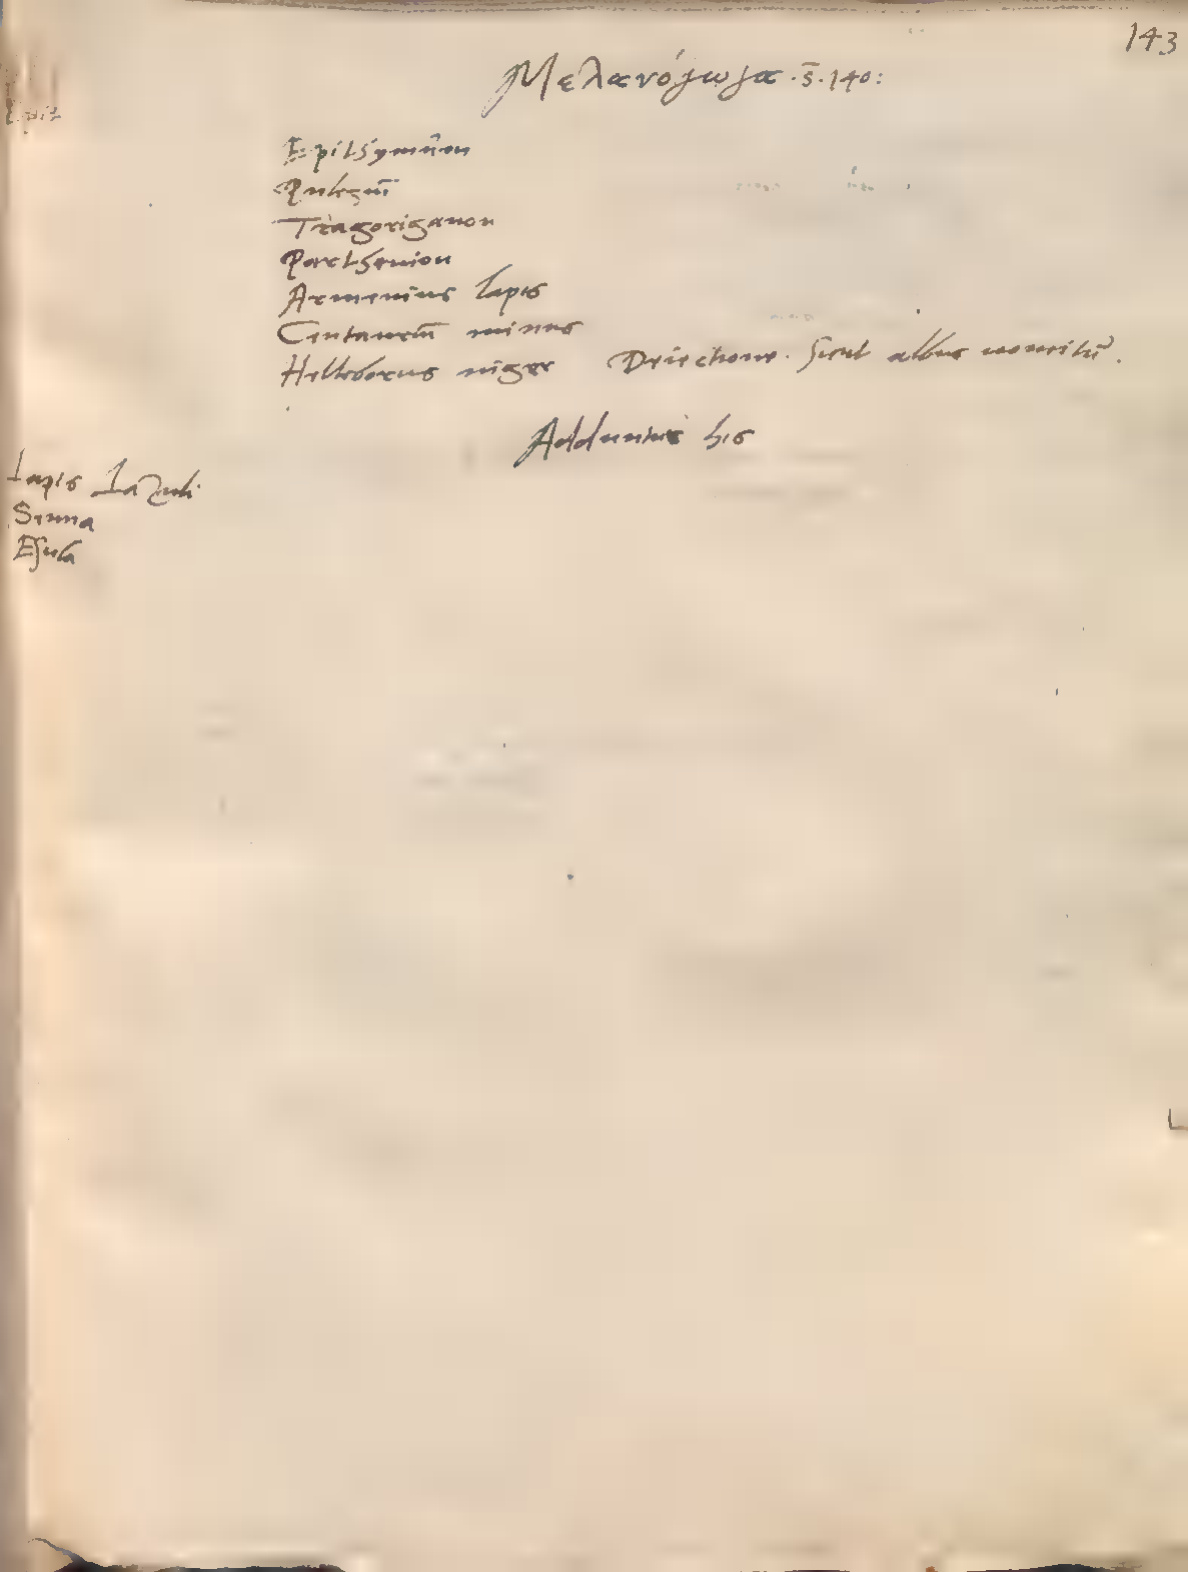 143
Μελανόγωγα · s̄ · 140:
Epithymon
Pulegiū
Tragoriganon
Parthenion
Armenius lapis
Centaureū minus
Helleborus niger Deiectione. Sicut albus vomitu.
Addimus his
Lapis Lazuli
Senna
Esula